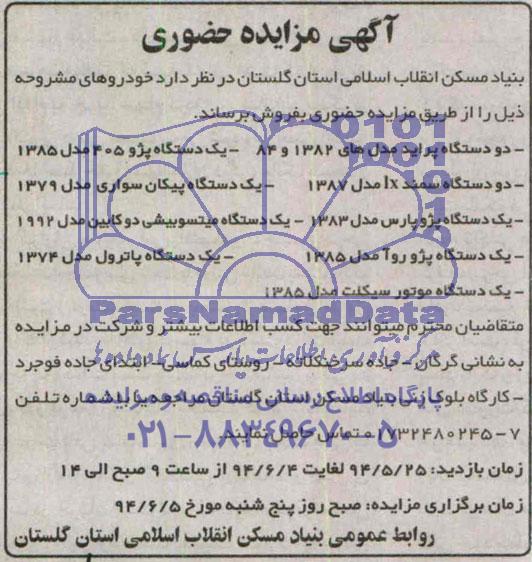 آگهی مزایده حضوری
بنیاد مسکن انقلاب اسلامی استان گلستان در نظر دارد خودروهای مشروحه
ذیل را از طریق مزایده حضوری بفروش برساند.
- دو دستگاه پراید مدل های ۱۳۸۲ و ۸۴ - یک دستگاه پژو ۴۰۵ مدل ۱۳۸۵
- دو دستگاه سمند lx مدل ۱۳۸۷ - یک دستگاه پیکان سواری مدل ۱۳۷۹
- یک دستگاه پژو پارس مدل ۱۳۸۳ - یک دستگاه میتسوبیشی دو کابین مدل ۱۹۹۲
- یک دستگاه پژو روآ مدل ۱۳۸۵ - یک دستگاه پاترول مدل ۱۳۷۴
- یک دستگاه موتور سیکلت مدل ۱۳۸۵
ParsNamadData
متقاضیان محترم میتوانند جهت کسب اطلاعات بیشتر و شرکت در مزایده
به نشانی گرگان - جاده سرخنکلاته - روستای کماسی - ابتدای جاده فوجرد
- کارگاه بلوک زنی بنیاد مسکن استان گلستان مراجعه یا با شماره تلفن
پایگاه اطلاع رسانی مناقصه و مزایده
۷-۱۷۳۲۴۸۰۲۴۵ تماس حاصل نمایند.
۰۲۱-۸۸۳۴۹۶۷۰-۵
زمان بازدید: ۹۴/۵/۲۵ لغایت ۹۴/۶/۴ از ساعت ۹ صبح الی ۱۴
زمان برگزاری مزایده: صبح روز پنج شنبه مورخ ۹۴/۶/۵
روابط عمومی بنیاد مسکن انقلاب اسلامی استان گلستان